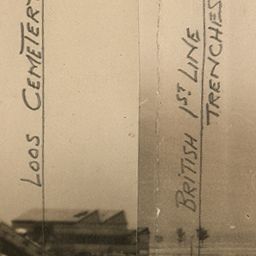 LOOS CEMETERY
BRITISH 1ST LINE
TRENCHES